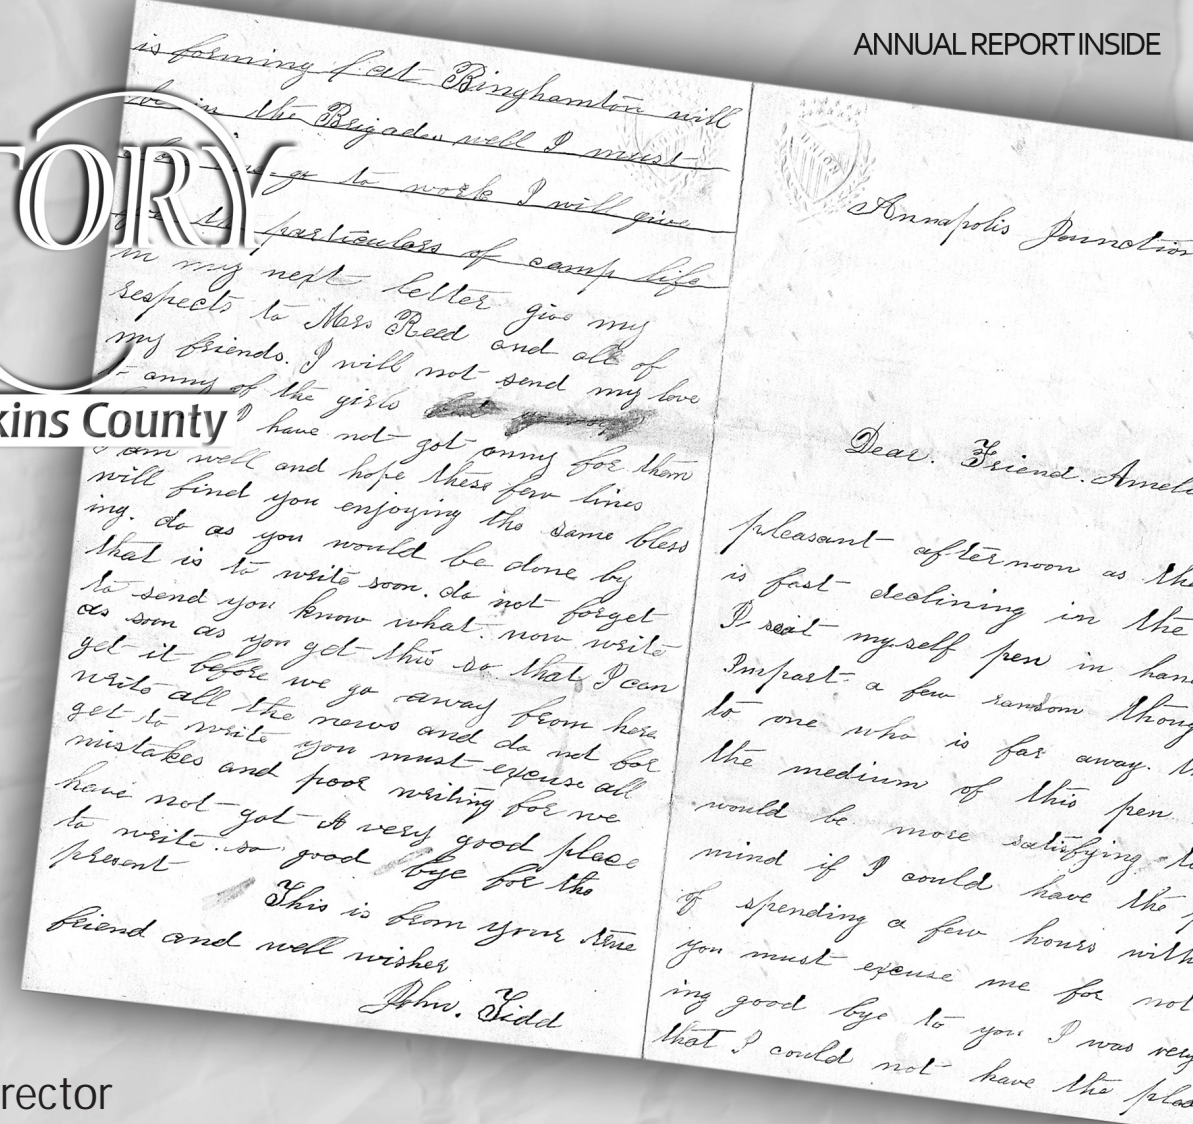 ANNUAL REPORT INSIDE
TORY
kins County
rector
is forming at Binghamton will
be in the Brigade well I must
go to work I will give
the particulars of camp life
in my next letter give my
respects to Mrs Reed and all of
my friends. I will not send my love
to anny of the girls
I have not got anny for them
I am well and hope these few lines
will find you enjoying the same bless
ing. do as you would be done by
that is to write soon. do not forget
to send you know what. now write
as soon as you get this so that I can
get it before we go away from here
write all the news and do not for
get to write you must excuse all
mistakes and poor writing for we
have not got A very good place
to write. so good bye for the
present
This is from your true
friend and well wisher
John. Tidd
Annapolis Junction
Dear. Friend. Amel
pleasant afternoon as the
is fast declining in the
I seat myself pen in han
Impart a few random thoug
to one who is far away.
the medium of this pen
would be more satisfying to
mind if I could have the
of spending a few hours with
you must excuse me for not
ing good bye to you I was very
that I could not have the pleas